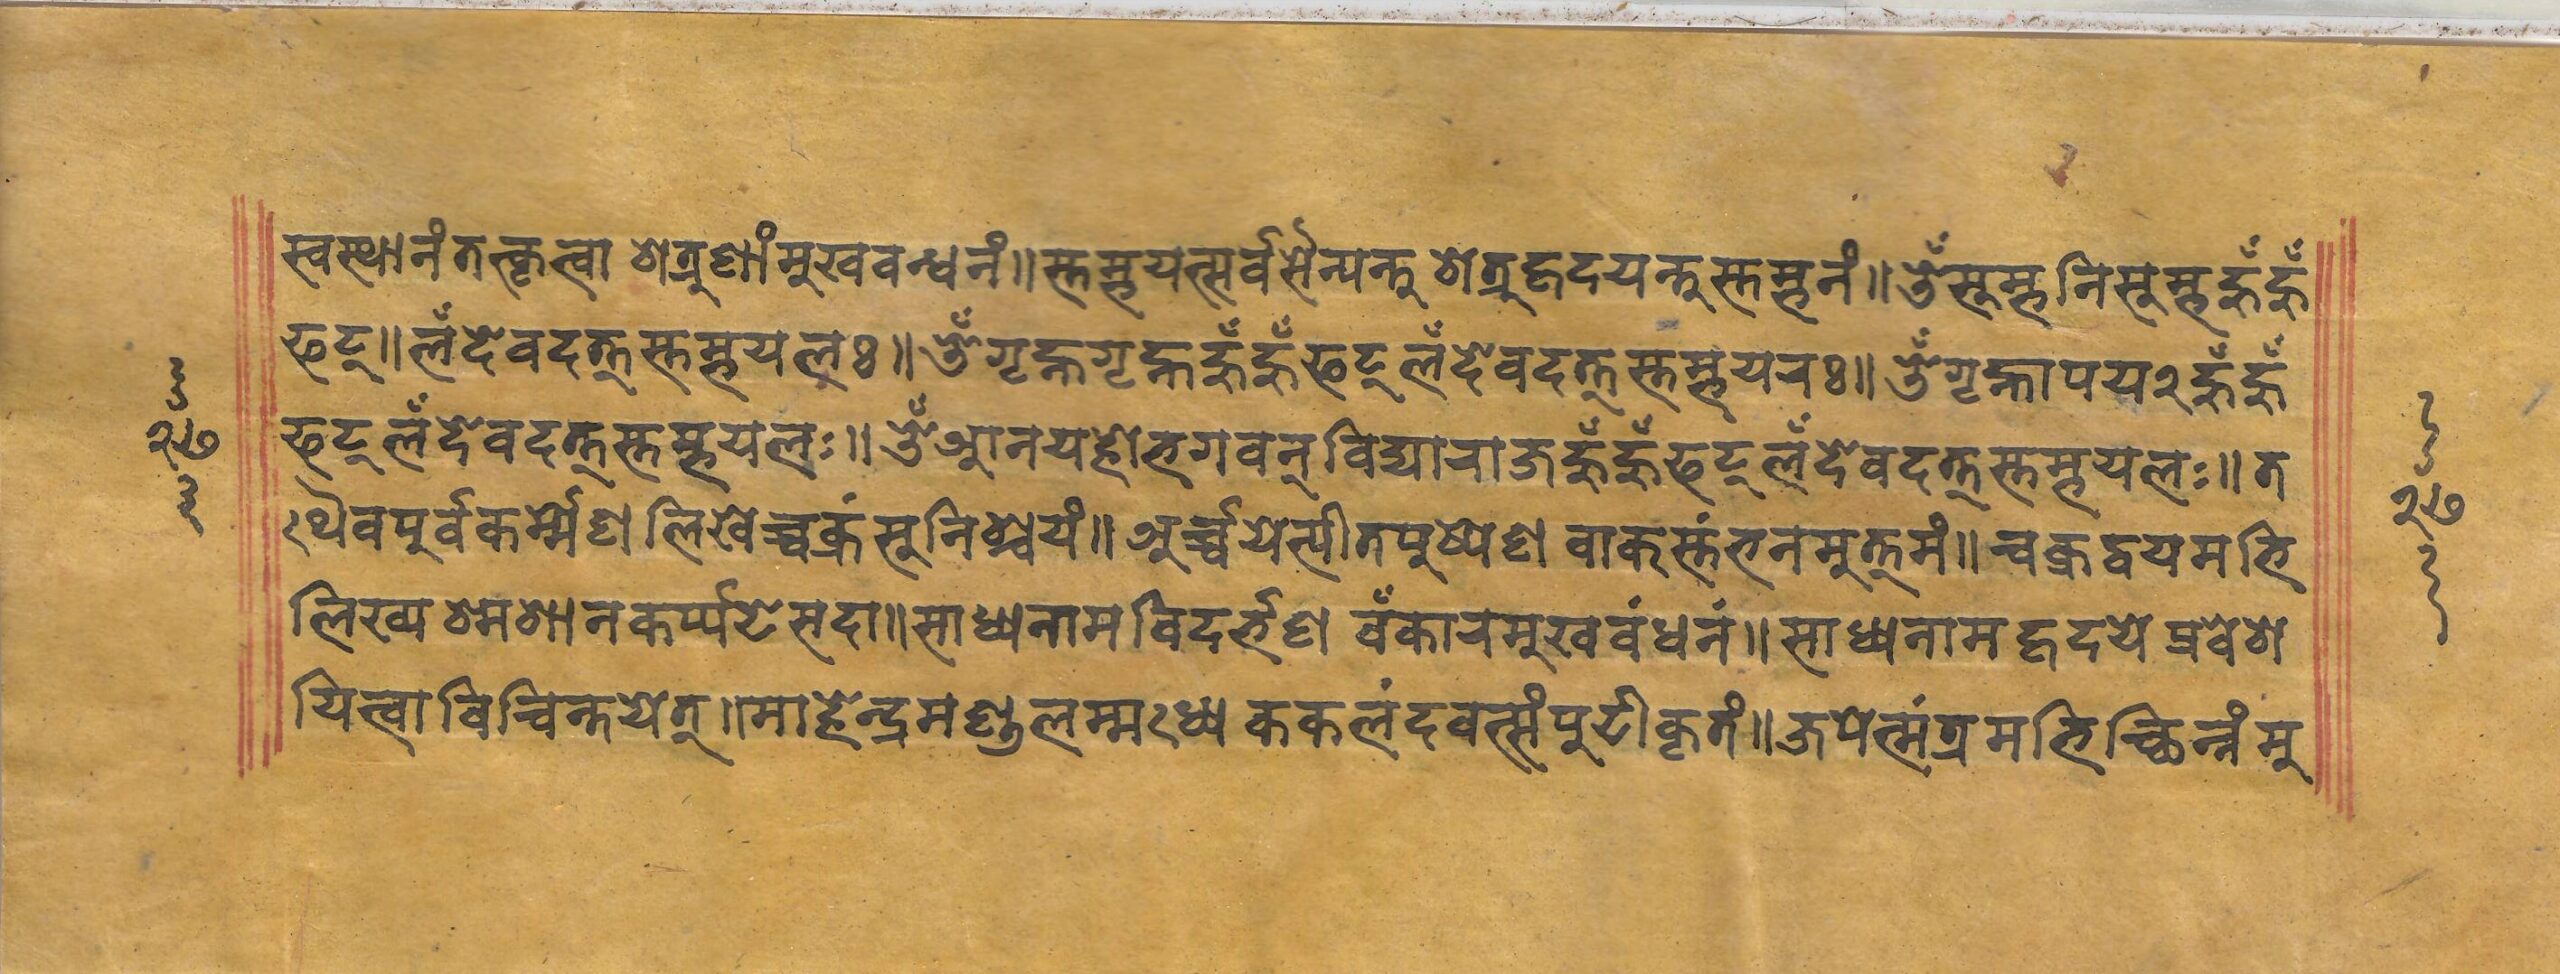 स्वस्थानंतत्कृत्वा शत्रुणांमुखवन्धनं॥स्तम्भयत्सर्वसैन्यन्तु शत्रुहृदयन्तुस्तम्भनं॥ॐसुम्भनिसुम्भहूँहूँ
फट्॥लँदेवदत्तस्तम्भयलः॥ॐगृह्नगृह्नहूँहूँफट्लँदेवदत्तस्तम्भयरः॥ॐगृह्नापय२हूँहूँ
२७ फट्लँदेवदत्तस्तम्भयलः॥ॐआनयहोभगवन्विद्याराजहूँहूँफट्लँदेवदत्तस्तम्भयलः॥त
थैवपूर्वकर्म्मेण लिखेच्चक्रंसुनिश्चयं॥अर्च्चयेत्पीतपुष्पेण वाक्स्तंभनमुत्तमं॥चक्रद्वयमभि २७
लिख्य श्मशानकर्प्पटेसदा॥साध्यनामविदर्भेण वँकारमुखवंधनं॥साध्यनामहृदये प्रवेश
यित्वाविचिन्तयेत्॥माहेन्द्रमण्डलम्मध्ये ककलंदवत्संपुटीकृतं॥जपेत्मंत्रमभिच्छिन्नंमु